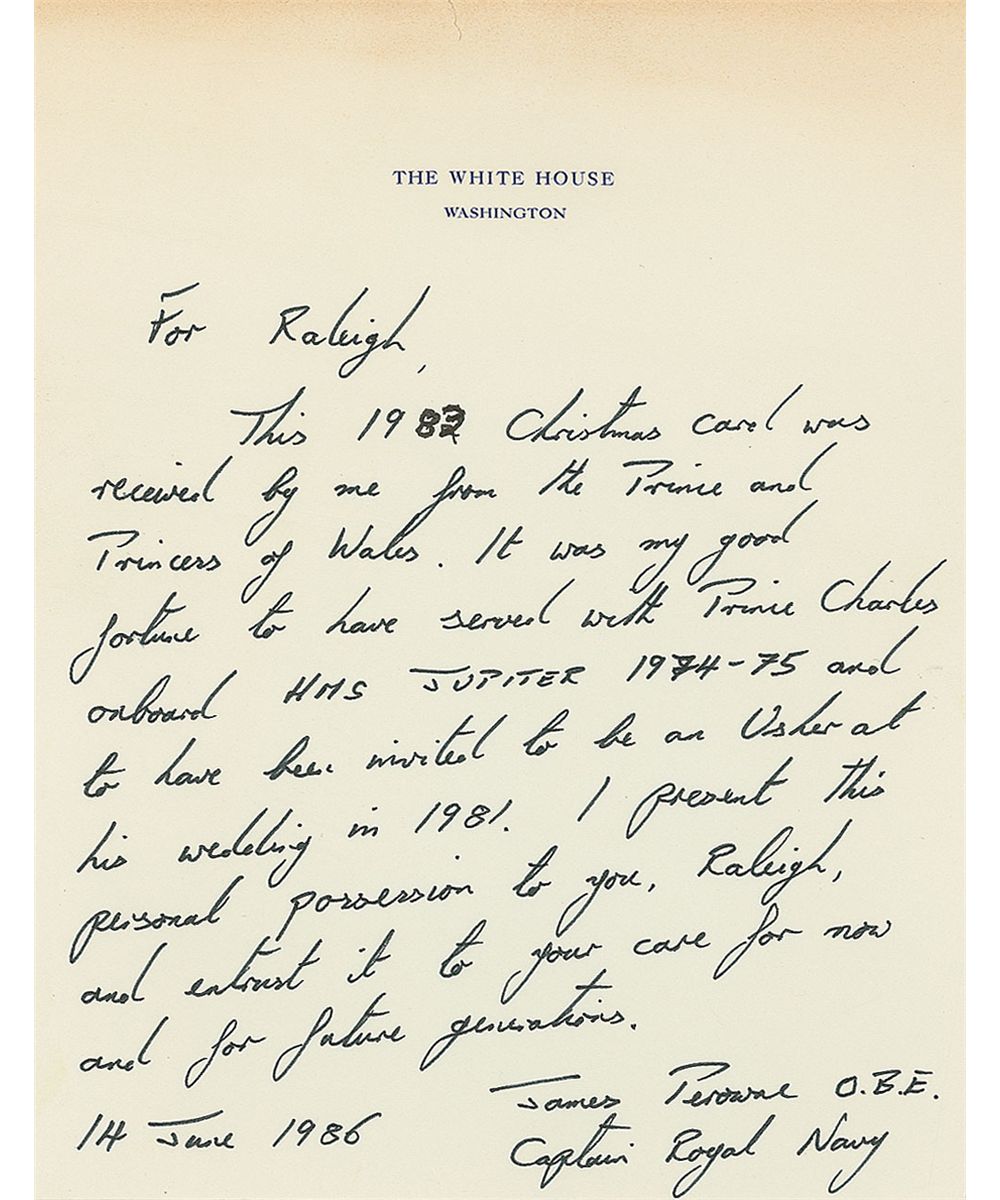 THE WHITE HOUSE
WASHINGTON
For Raleigh,
This 1983 Christmas card was
received by me from the Prince and
Princess of Wales. It was my good
fortune to have served with Prince Charles
onboard HMS JUPITER 1974-75 and
to have been invited to be an Usher at
his wedding in 1981. I present this
personal possession to you, Raleigh,
and entrust it to your care for now
and for future generations.
James Perowne O.B.E.
14 June 1986
Captain Royal Navy